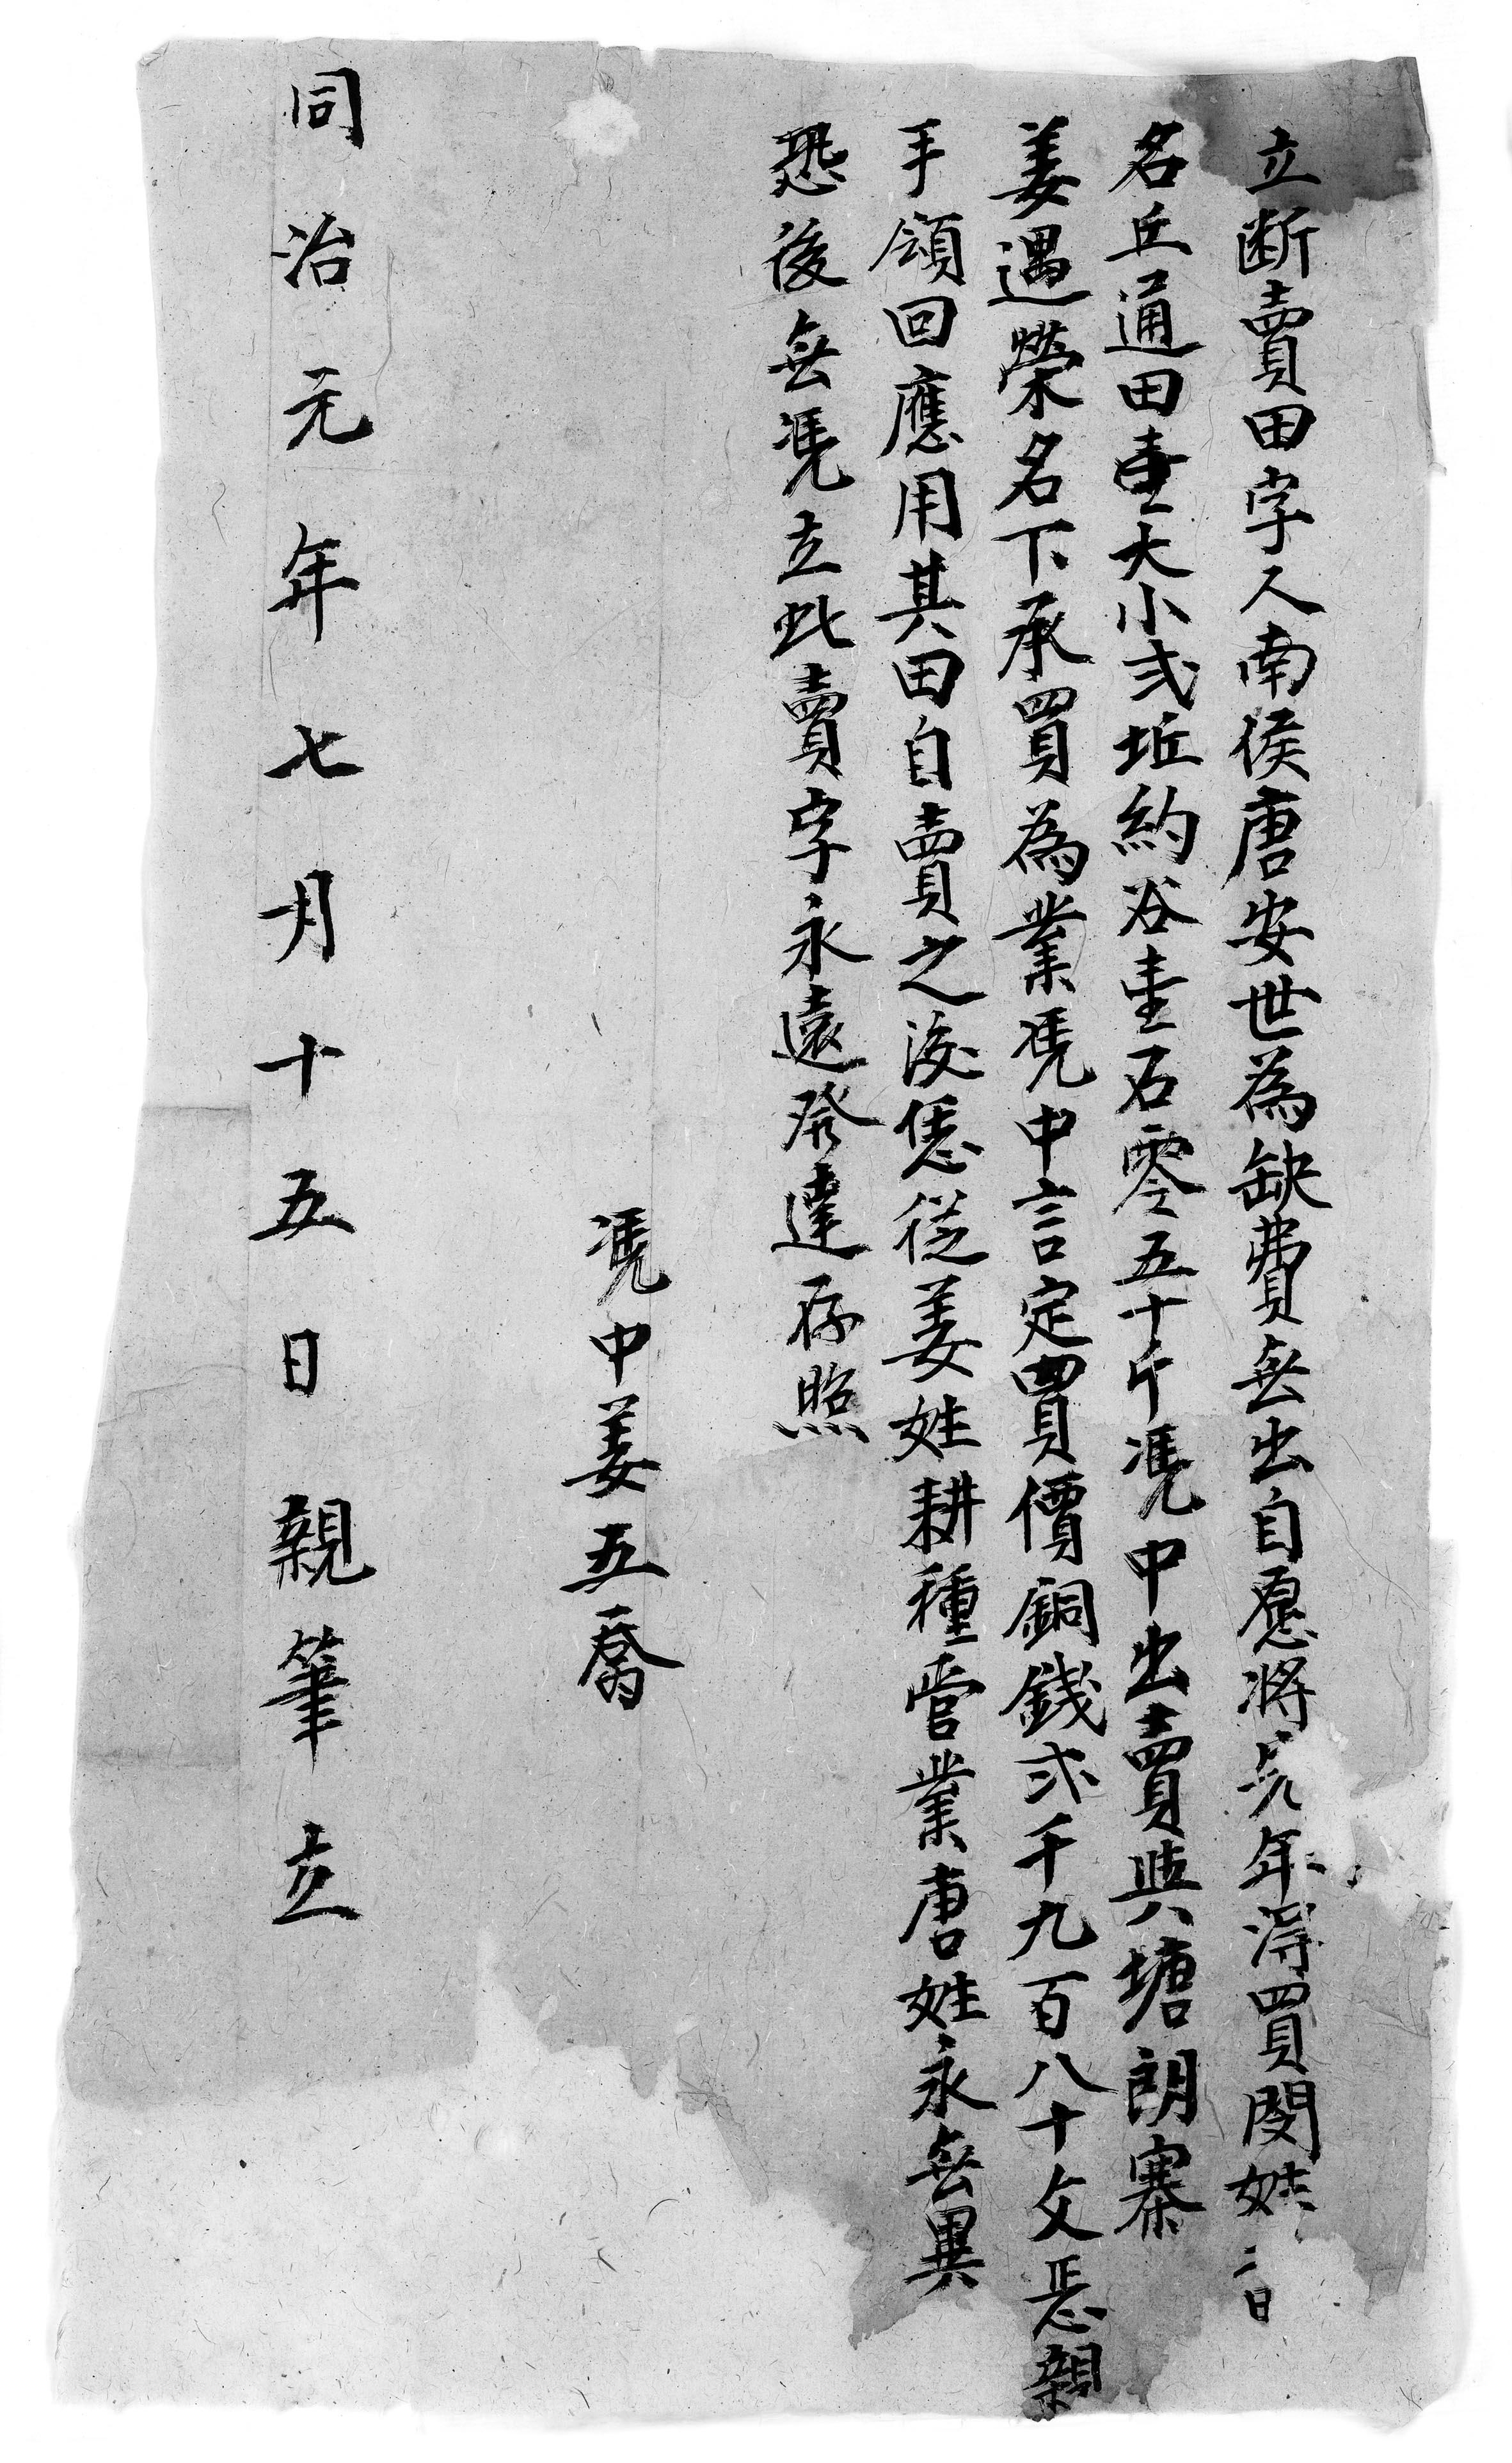 立断賣田字人南侯唐安世為缺費無出自愿將先年得買閔姓
名丘通田壹大小弍坵約谷壹石零五十斤凴中出賣與塘朗寨
姜遇榮名下承買為業凴中言定買價銅錢弍千九百八十文恁親
手領回應用其田自賣之後恁從姜姓耕種管業唐姓永無異
恐後無凴立此賣字永遠發達存照
凴中姜五喬
同治元年七月十五日親筆立